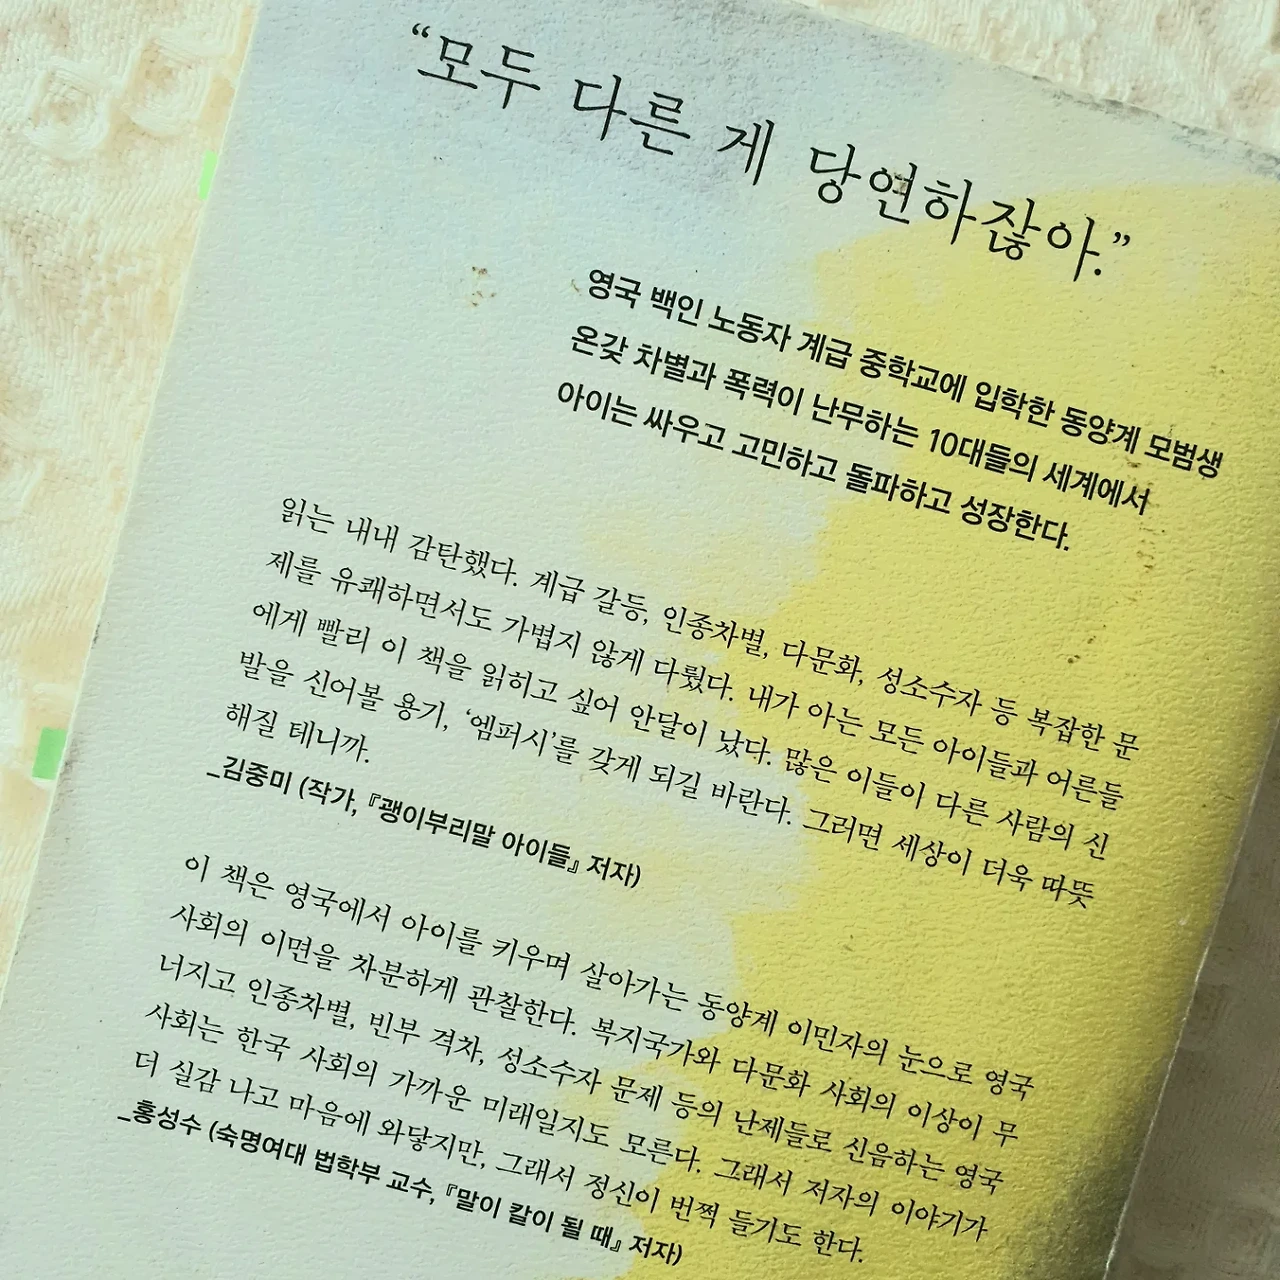 “모두 다른 게 당연하잖아.”
영국 백인 노동자 계급 중학교에 입학한 동양계 모범생
온갖 차별과 폭력이 난무하는 10대들의 세계에서
아이는 싸우고 고민하고 돌파하고 성장한다.
읽는 내내 감탄했다. 계급 갈등, 인종차별, 다문화, 성소수자 등 복잡한 문
제를 유쾌하면서도 가볍지 않게 다뤘다. 내가 아는 모든 아이들과 어른들
에게 빨리 이 책을 읽히고 싶어 안달이 났다. 많은 이들이 다른 사람의 신
발을 신어볼 용기, ‘엠퍼시’를 갖게 되길 바란다. 그러면 세상이 더욱 따뜻
해질 테니까.
_김중미 (작가, 『괭이부리말 아이들』 저자)
이 책은 영국에서 아이를 키우며 살아가는 동양계 이민자의 눈으로 영국
사회의 이면을 차분하게 관찰한다. 복지국가와 다문화 사회의 이상이 무
너지고 인종차별, 빈부 격차, 성소수자 문제 등의 난제들로 신음하는 영국
사회는 한국 사회의 가까운 미래일지도 모른다. 그래서 저자의 이야기가
더 실감 나고 마음에 와닿지만, 그래서 정신이 번쩍 들기도 한다.
_홍성수 (숙명여대 법학부 교수, 『말이 칼이 될 때』 저자)